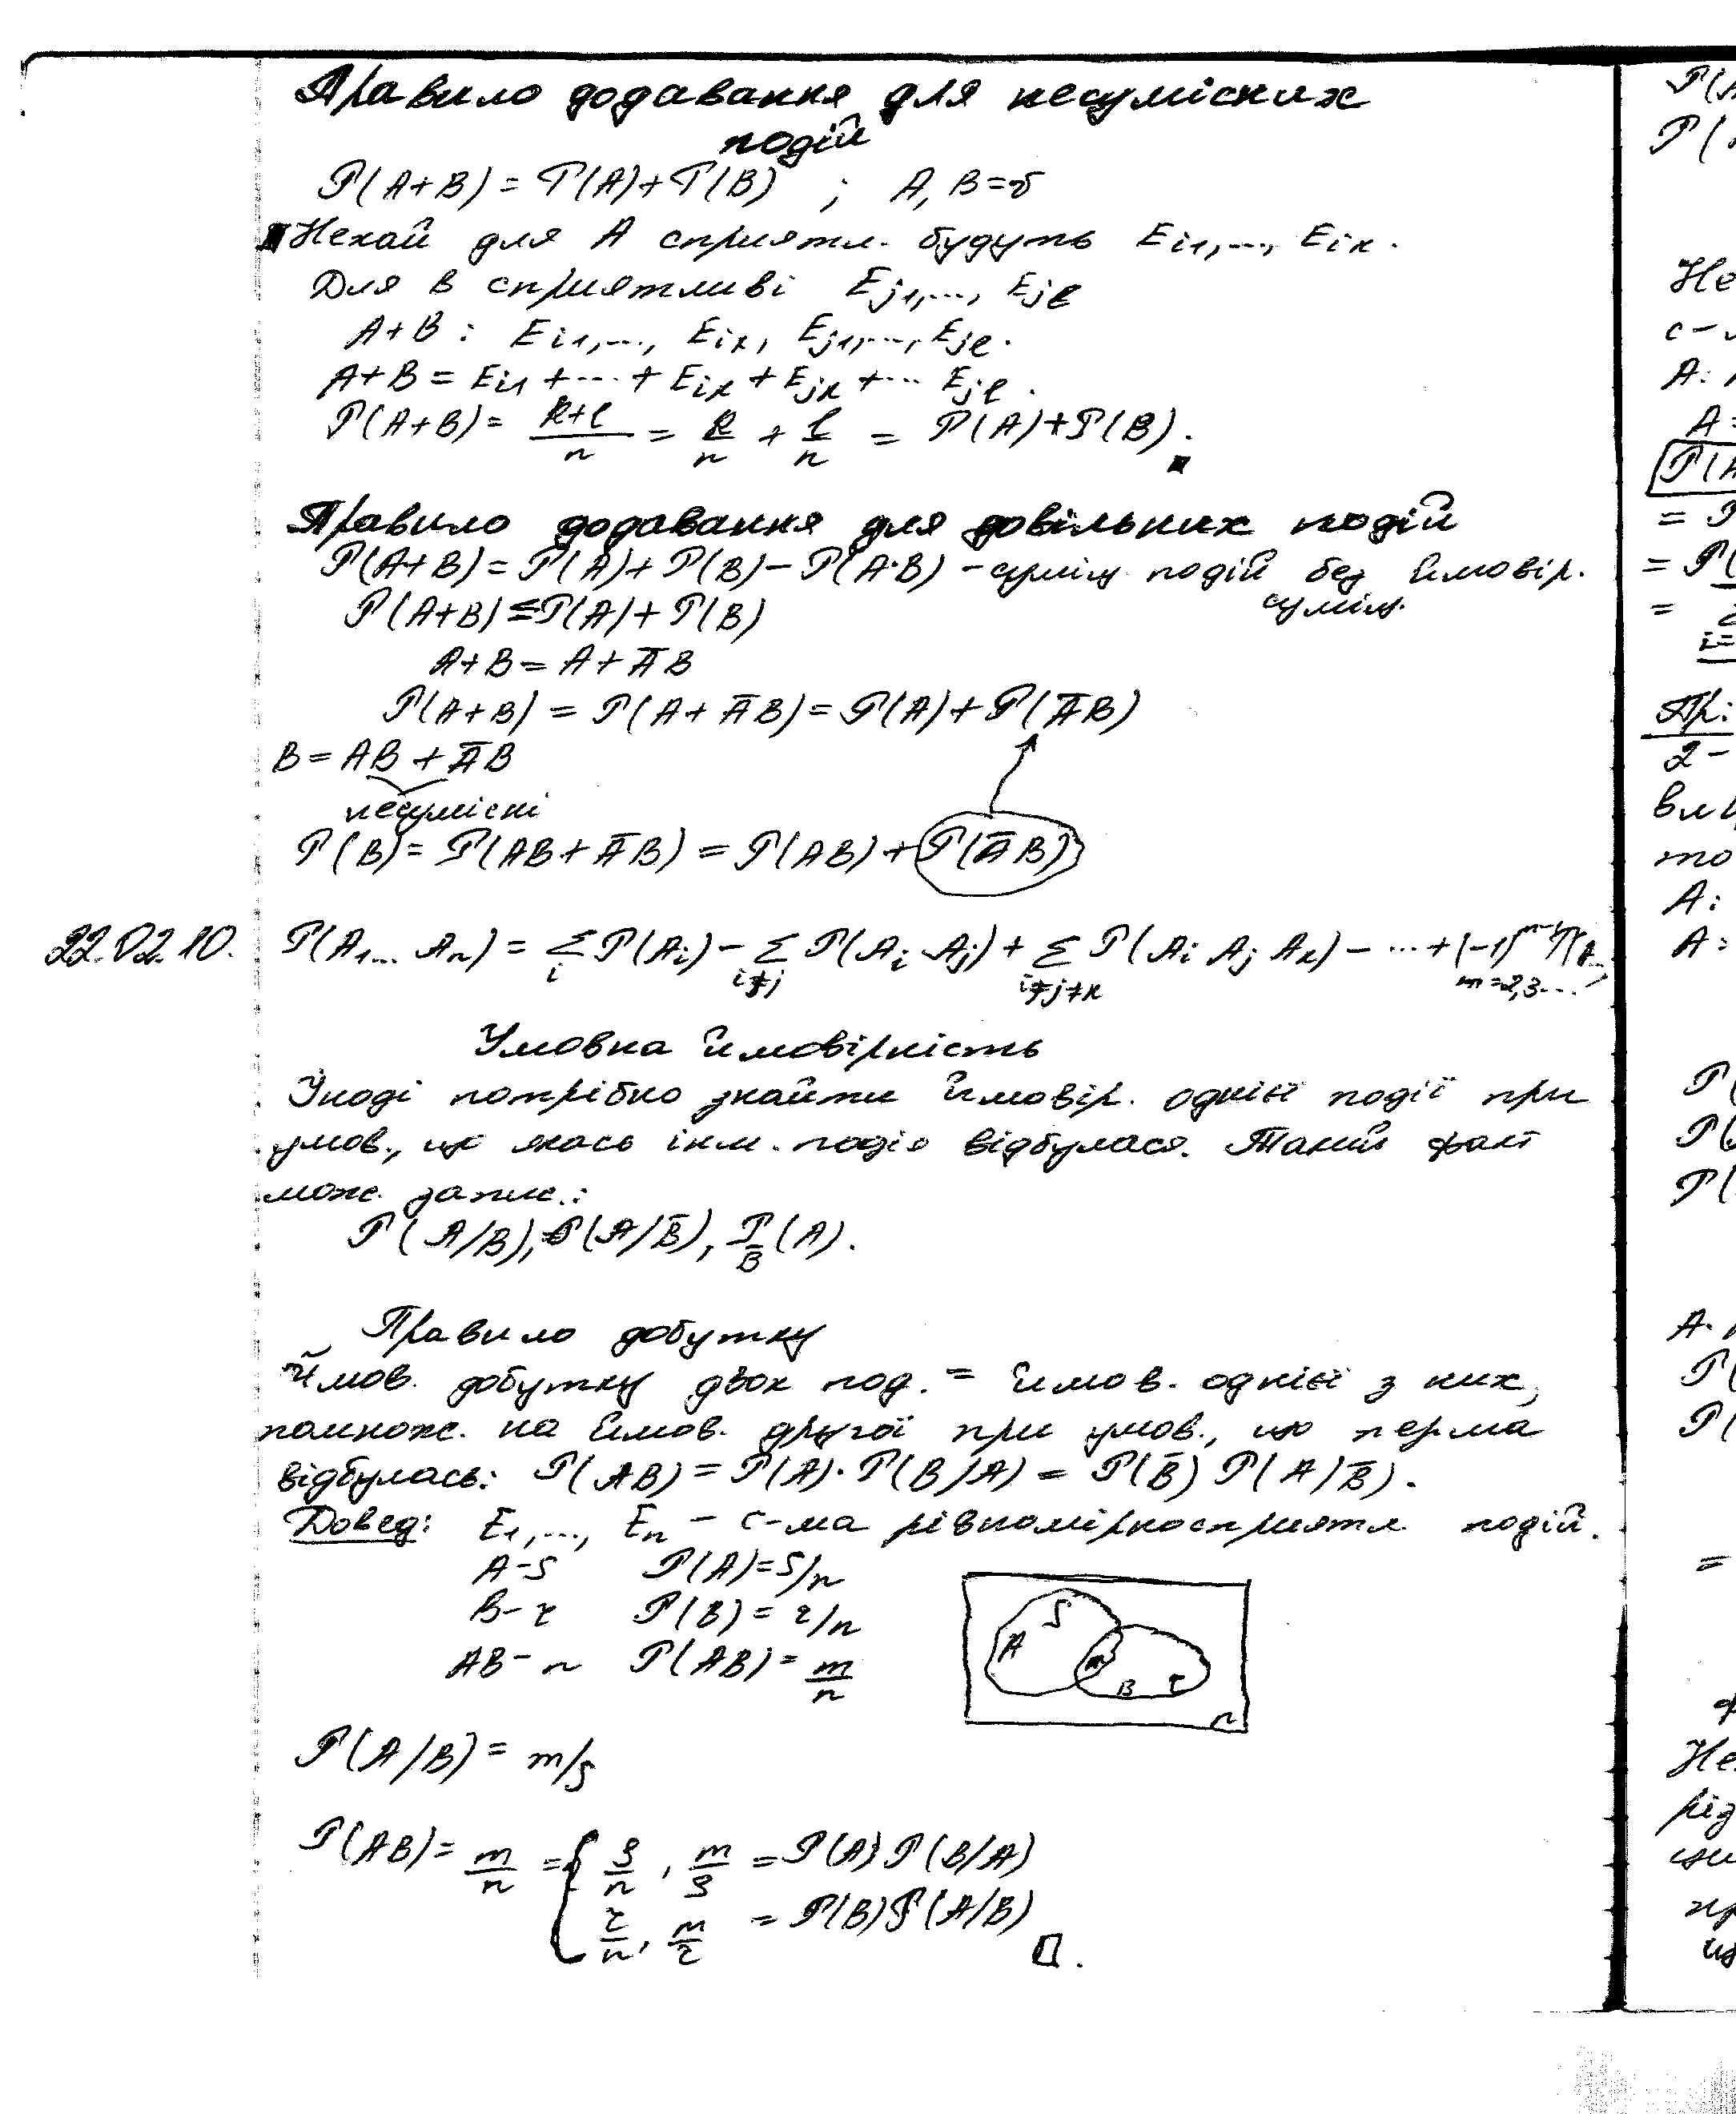 Правило додавання для несумісних
подій
P(A+B) = P(A)+P(B) ; A, B =
Нехай для A сприятл. будуть Ei1,..., Eik.
Для B сприятливі Ej1,..., Ejl
A+B : Ei1,..., Eik, Ej1,..., Ejl.
A+B = Ei1 +...+ Eik + Ejk +... Ejl.
P(A+B) = (k+l)/n = k/n + l/n = P(A)+P(B).
Правило додавання для довільних подій
P(A+B) = P(A)+P(B)-P(A·B) - суміщ. подій без ймовір.
суміщ.
P(A+B) ≤ P(A)+P(B)
A+B = A+ĀB
P(A+B) = P(A+ĀB) = P(A)+P(ĀB)
B = AB + ĀB
несумісні
P(B) = P(AB+ĀB) = P(AB)+P(ĀB)
22.02.10. P(A1... An) = Σ P(Ai) - Σ P(Ai Aj) + Σ P(Ai Aj Ak) - ... + (-1)^m-1
i i≠j i≠j≠k m=2,3...
Умовна ймовірність
Іноді потрібно знайти ймовір. однієї події при
умов., що якась інш. подія відбулася. Такий факт
мож. запис.:
P(A/B), P(A/B̄), P_B̄(A).
Правило добутку
Ймов. добутку двох под. = ймов. однієї з них,
помнож. на ймов. другої при умов., що перша
відбулась: P(AB) = P(A)·P(B/A) = P(B̄) P(A/B̄).
Довед: E1,..., En - с-ма рівномірносприятл. подій.
A-S P(A)=S/n
B-r P(B)=r/n
AB-n P(AB)=m/n
A S m B r n
P(A/B) = m/S
P(AB) = m/n = { S/n · m/S = P(A) P(B/A)
r/n · m/r = P(B) P(A/B)